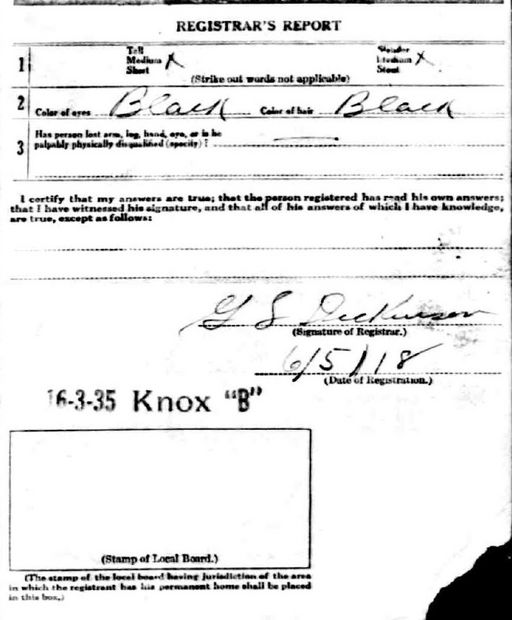 REGISTRAR'S REPORT
1 Tall Slender
Medium X Medium X
Short Stout
(Strike out words not applicable)
2 Color of eyes Black Color of hair Black
3 Has person lost arm, leg, hand, eye, or is he
palpably physically disqualified (specify)?
I certify that my answers are true; that the person registered has read his own answers;
that I have witnessed his signature, and that all of his answers of which I have knowledge,
are true, except as follows:
G S Dickinson
(Signature of Registrar.)
6/5/18
(Date of Registration.)
16-3-35 Knox "B"
(Stamp of Local Board.)
(The stamp of the local board having jurisdiction of the area
in which the registrant has his permanent home shall be placed
in this box.)